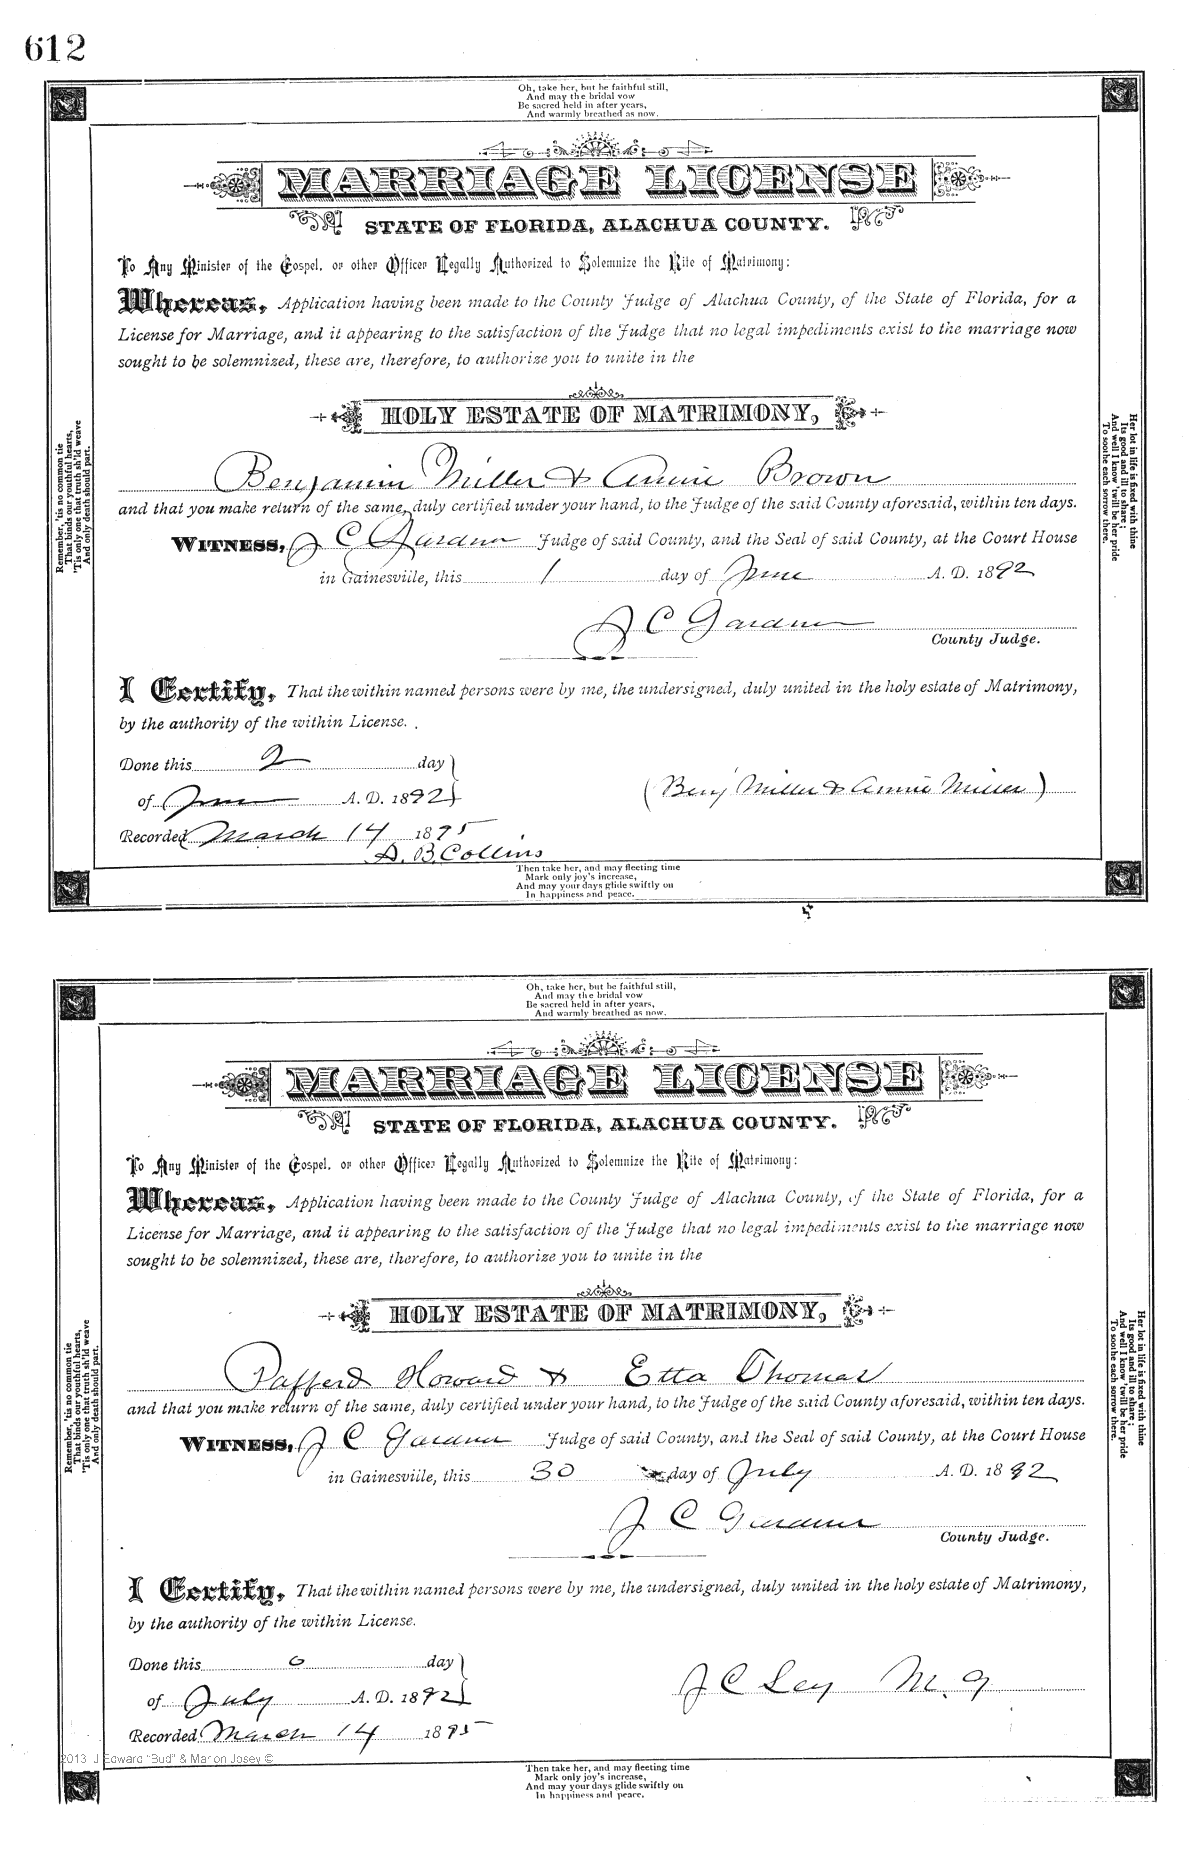 612
Oh, take her, but be faithful still,
And may the bridal vow
Be sacred held in after years,
And warmly breathed as now.
MARRIAGE LICENSE
STATE OF FLORIDA, ALACHUA COUNTY.
To Any Minister of the Gospel, or other Officer Legally Authorized to Solemnize the Rite of Matrimony:
Whereas, Application having been made to the County Judge of Alachua County, of the State of Florida, for a
License for Marriage, and it appearing to the satisfaction of the Judge that no legal impediments exist to the marriage now
sought to be solemnized, these are, therefore, to authorize you to unite in the
HOLY ESTATE OF MATRIMONY,
Benjamin Miller & Annie Brown
and that you make return of the same, duly certified under your hand, to the Judge of the said County aforesaid, within ten days.
WITNESS, J C Gardner Judge of said County, and the Seal of said County, at the Court House
in Gainesville, this 1 day of June A. D. 1892
J C Gardner
County Judge.
I Certify, That the within named persons were by me, the undersigned, duly united in the holy estate of Matrimony,
by the authority of the within License.
Done this 2 day
of June A. D. 1892
(Benj Miller & Annie Miller)
Recorded March 14 1895
A. B. Collins
Then take her, and may fleeting time
Mark only joy's increase,
And may your days glide swiftly on
In happiness and peace.
Remember, 'tis no common tie
That binds our youthful hearts,
'Tis only one that truth sh'ld weave
And only death should part.
Her lot in life is fixed with thine
Its good and ill to share;
And well I know 'twill be her pride
To soothe each sorrow there.
Oh, take her, but be faithful still,
And may the bridal vow
Be sacred held in after years,
And warmly breathed as now.
MARRIAGE LICENSE
STATE OF FLORIDA, ALACHUA COUNTY.
To Any Minister of the Gospel, or other Officer Legally Authorized to Solemnize the Rite of Matrimony:
Whereas, Application having been made to the County Judge of Alachua County, of the State of Florida, for a
License for Marriage, and it appearing to the satisfaction of the Judge that no legal impediments exist to the marriage now
sought to be solemnized, these are, therefore, to authorize you to unite in the
HOLY ESTATE OF MATRIMONY,
Pafferd Howard & Etta Thomas
and that you make return of the same, duly certified under your hand, to the Judge of the said County aforesaid, within ten days.
WITNESS, J C Gardner Judge of said County, and the Seal of said County, at the Court House
in Gainesville, this 30 day of July A. D. 1892
J C Gardner
County Judge.
I Certify, That the within named persons were by me, the undersigned, duly united in the holy estate of Matrimony,
by the authority of the within License.
Done this 6 day
of July A. D. 1892
J C Ley M. G
Recorded March 14 1895
2013 J Edward "Bud" & Marion Josey ©
Then take her, and may fleeting time
Mark only joy's increase,
And may your days glide swiftly on
In happiness and peace.
Remember, 'tis no common tie
That binds our youthful hearts,
'Tis only one that truth sh'ld weave
And only death should part.
Her lot in life is fixed with thine
Its good and ill to share;
And well I know 'twill be her pride
To soothe each sorrow there.